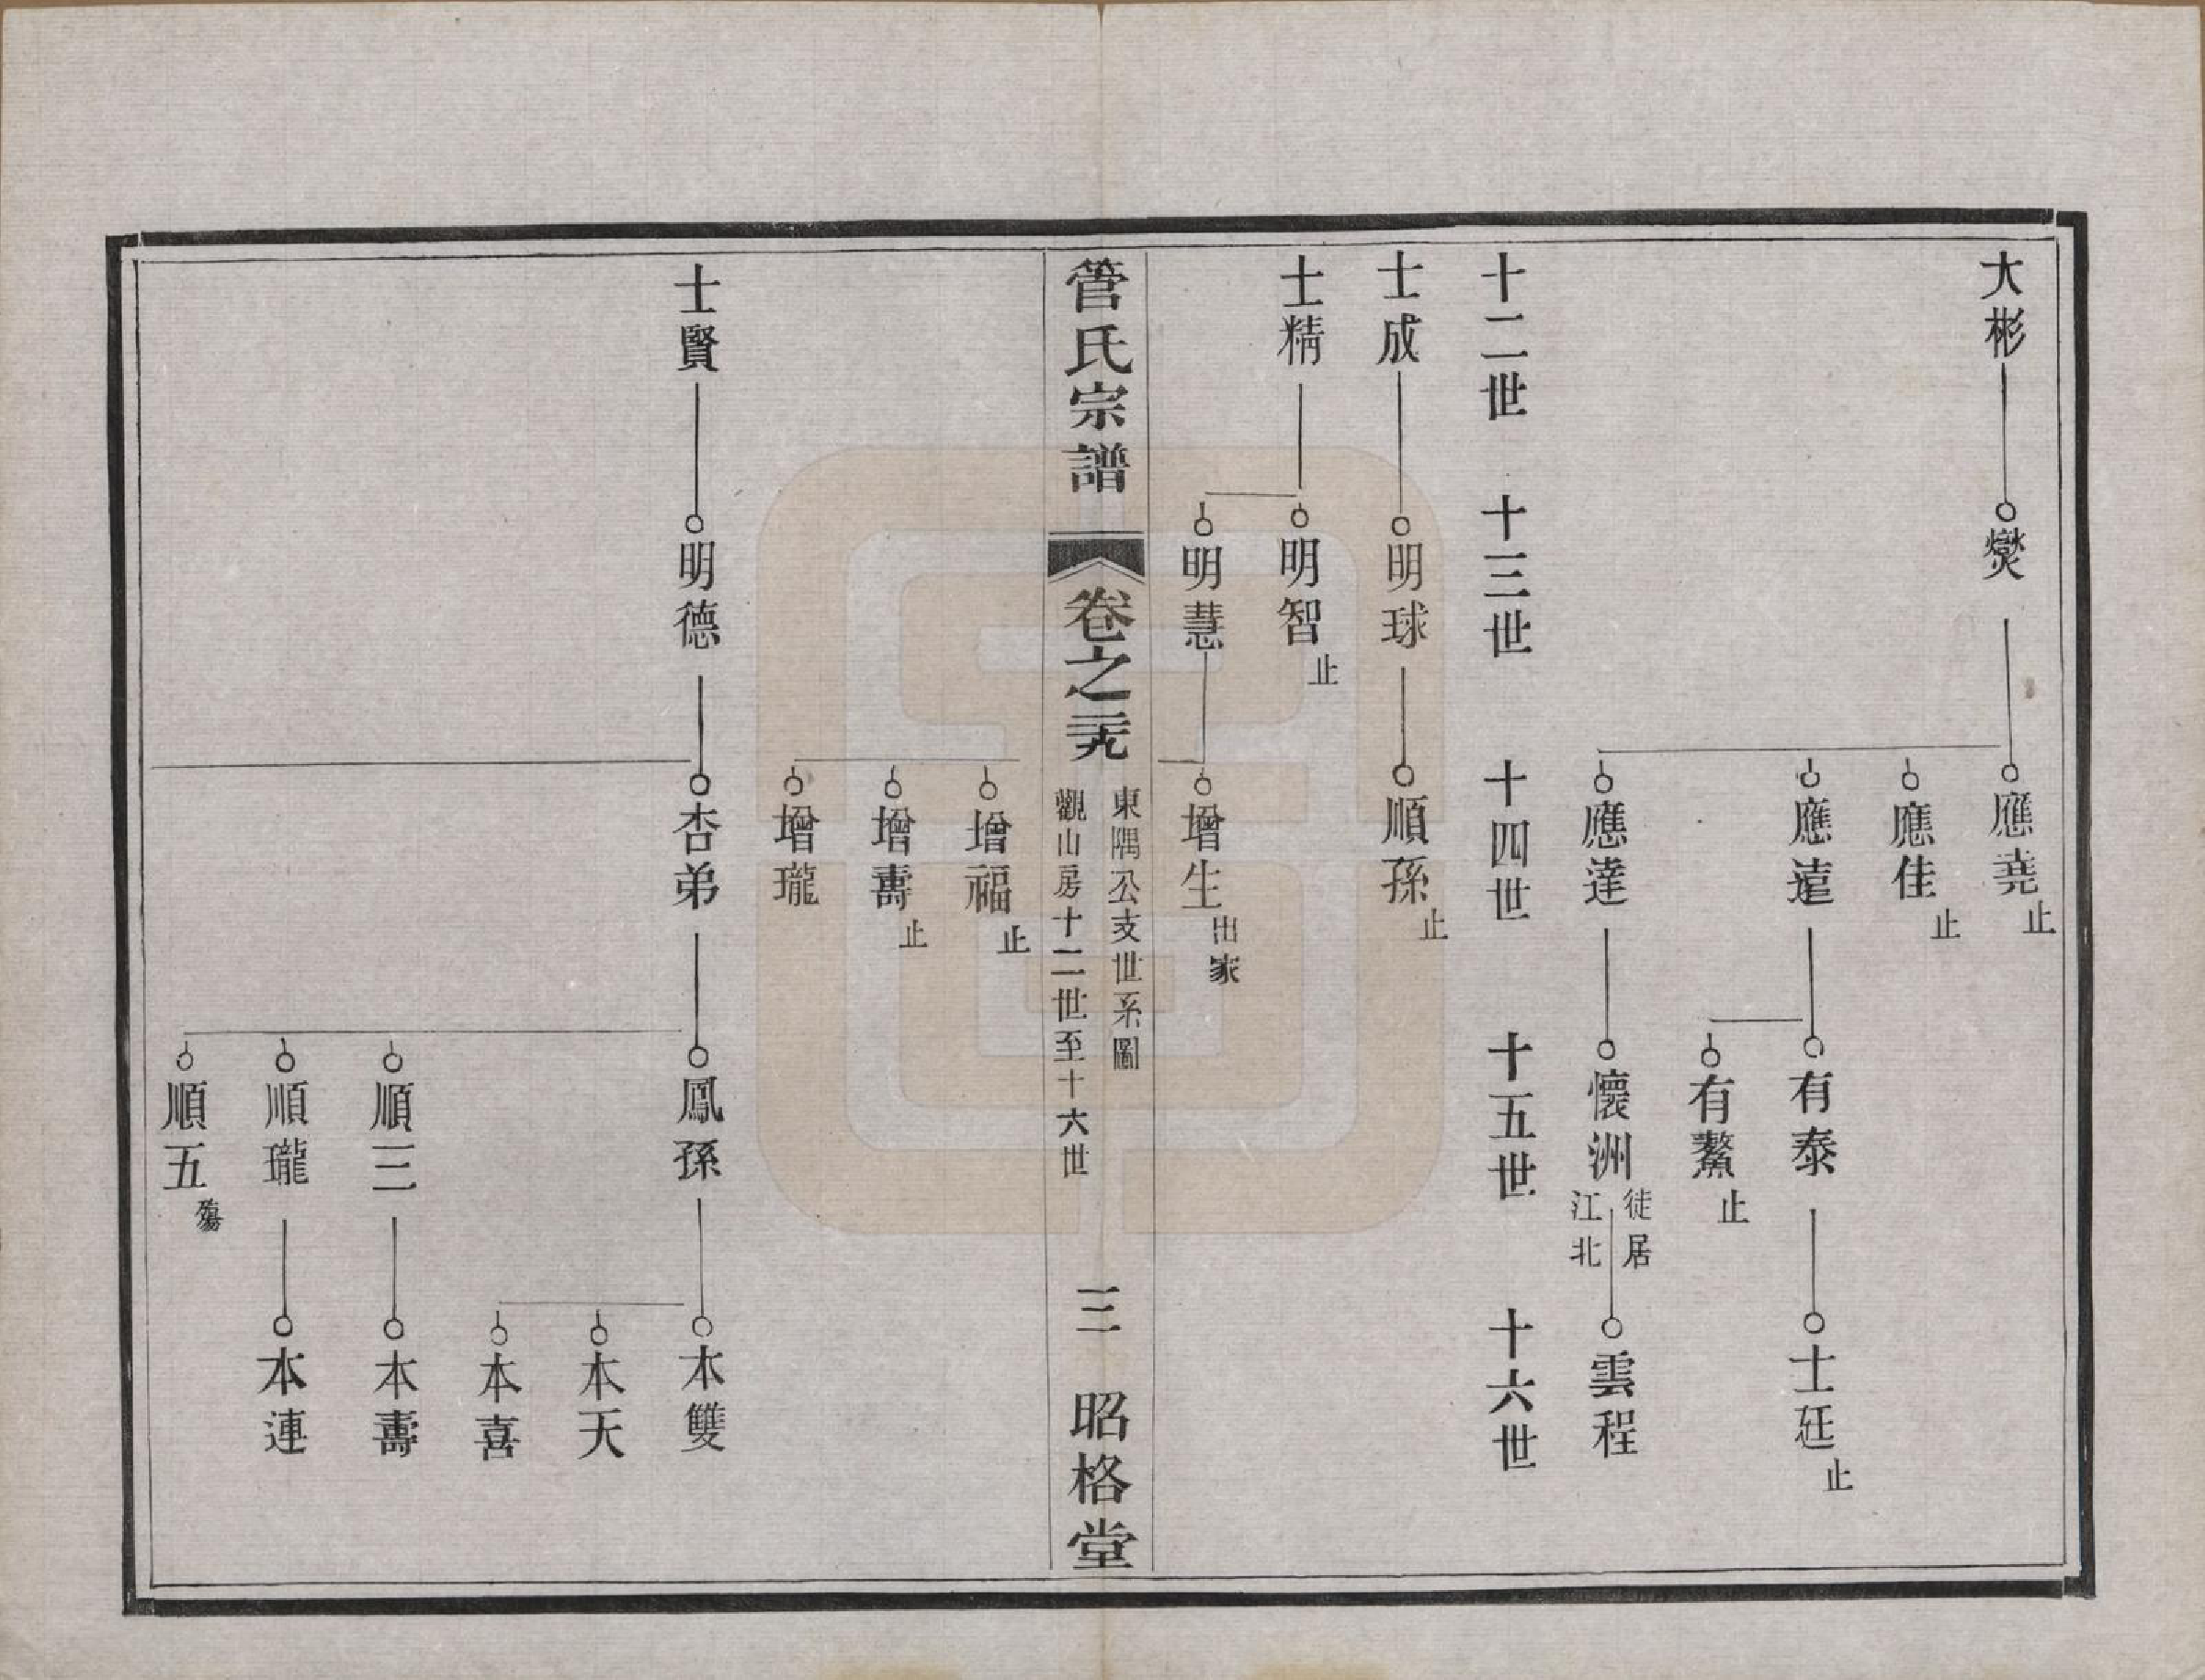 大彬
燮
應堯止
應佳止
應遠
有泰
士廷止
有鰲止
應達
懷洲徙居江北
雲程
十二世
十三世
十四世
十五世
十六世
士成
明球
順孫止
士精
明智止
明慧
增生出家
管氏宗譜
卷之
東隅公支世系圖
觀山房十二世至十六世
三
昭格堂
增福止
增壽止
增瓏
士賢
明德
杏弟
鳳孫
本雙
本天
本喜
順三
本壽
順瓏
本連
順五殤